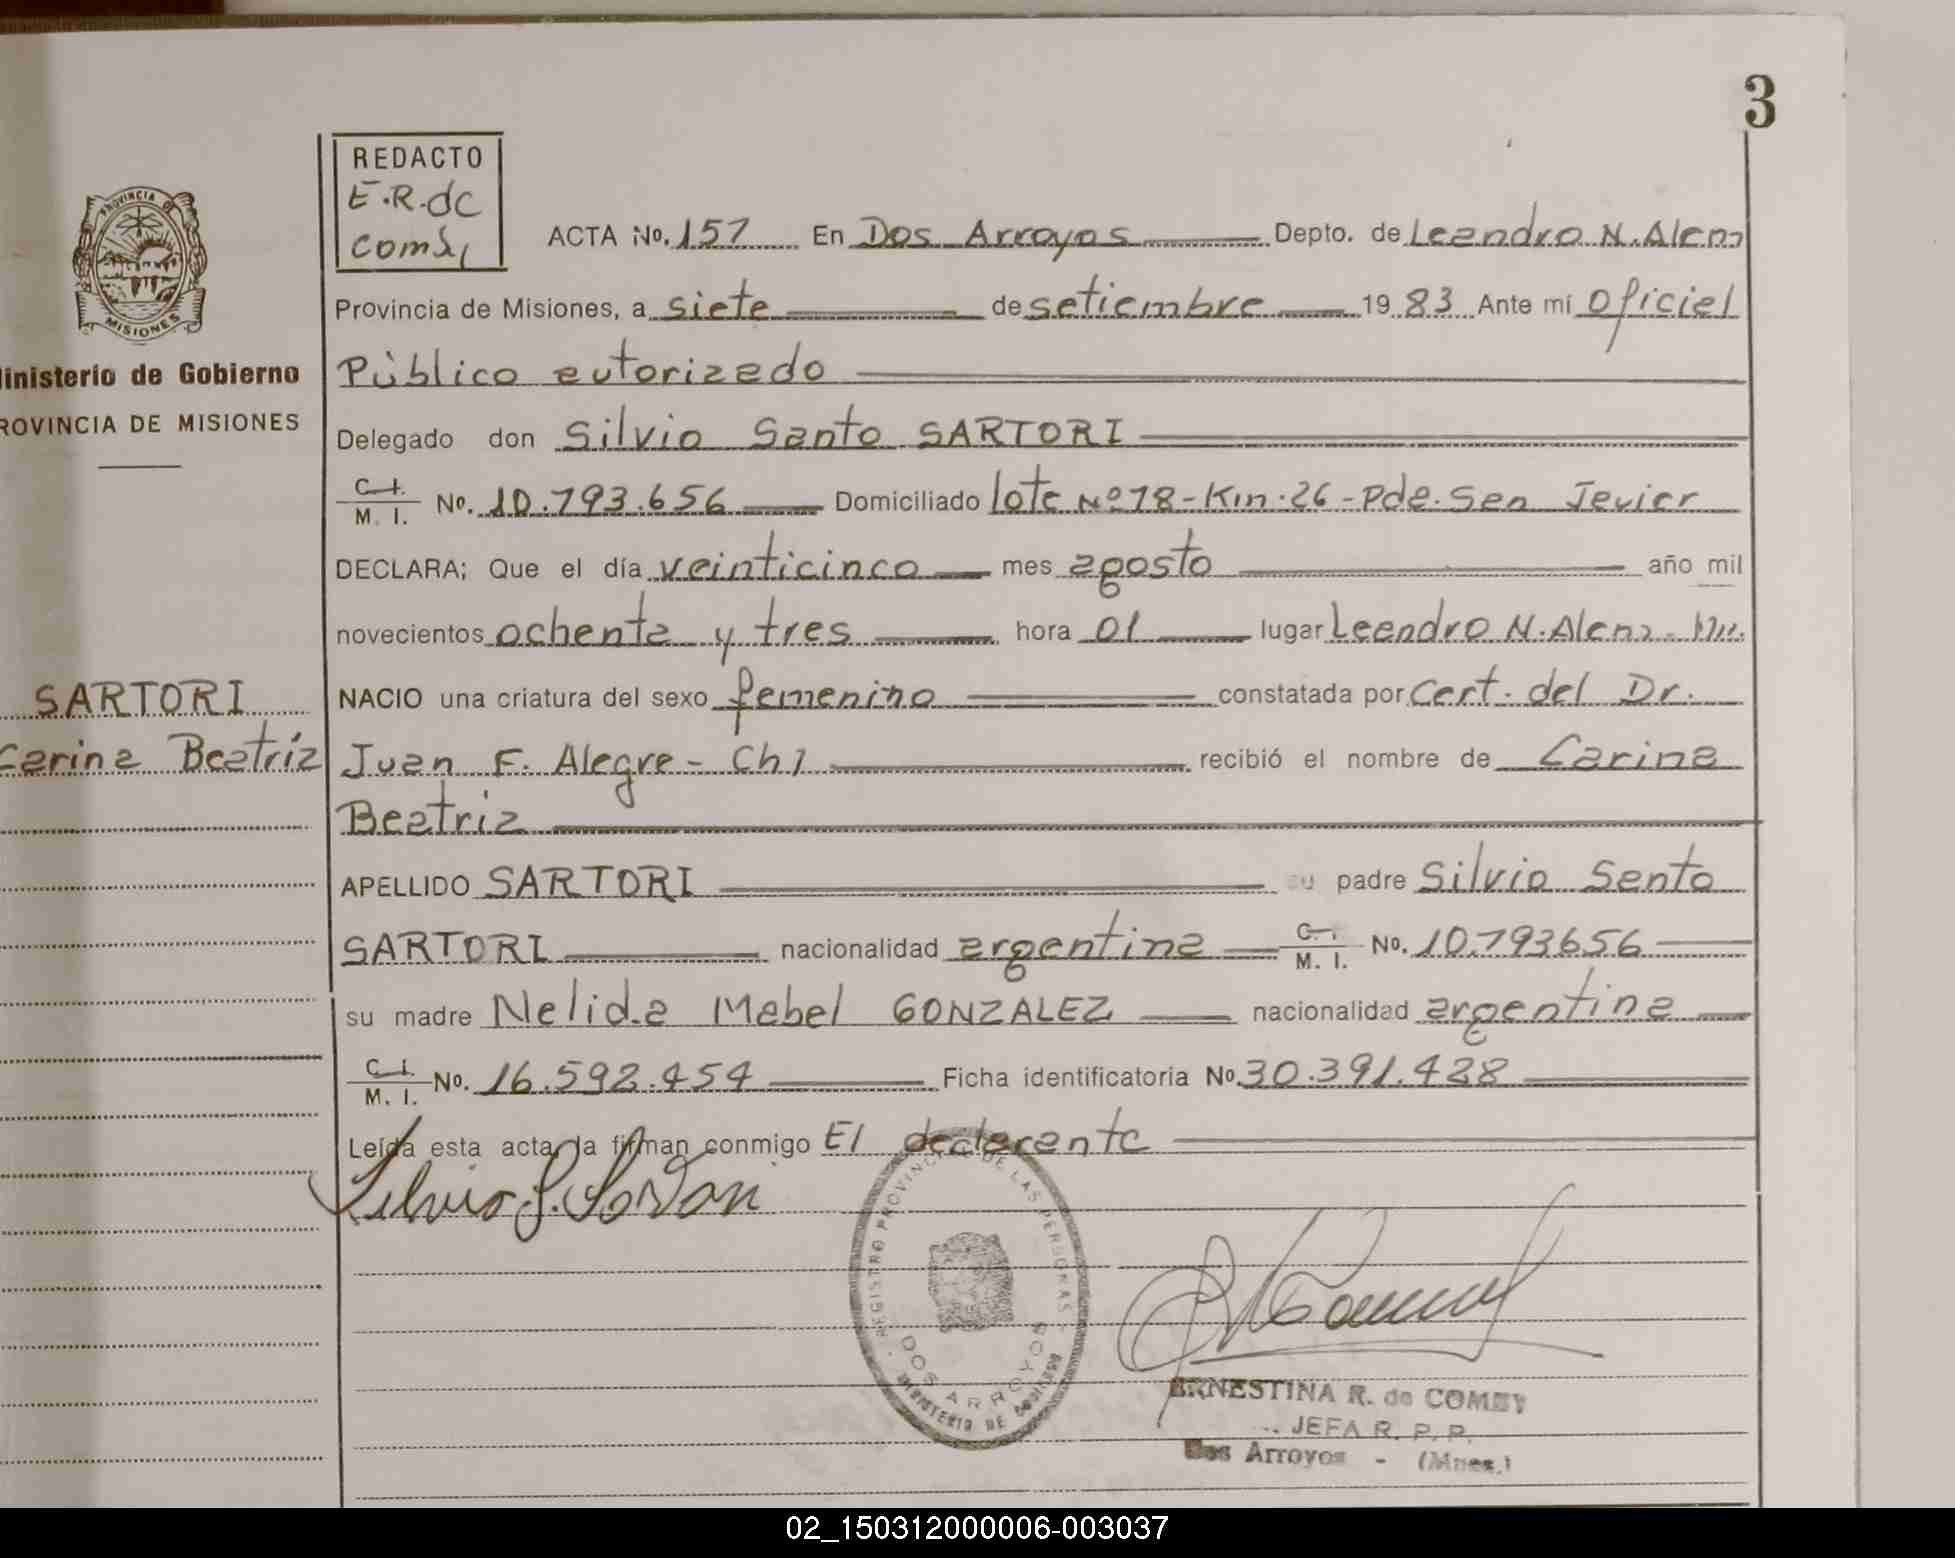 3
REDACTO
E.R.de
ACTA No. 157 En Dos Arroyos Depto. de Leandro N. Alem
PROVINCIA DE
MISIONES
Provincia de Misiones, a siete de setiembre 1983 Ante mi Oficial
Ministerio de Gobierno
Público autorizado
PROVINCIA DE MISIONES
Delegado don Silvio Santo SARTORI
C.I.
M. I. No. 10.793.656 Domiciliado lote Nº 78-Km.26-Pda.San Javier
DECLARA; Que el día veinticinco mes agosto año mil
novecientos ochenta y tres hora 01 lugar Leandro N. Alem
SARTORI
NACIO una criatura del sexo femenino constatada por Cert. del Dr.
Carina Beatriz
Juan F. Alegre- Ch] recibió el nombre de Carina
Beatriz
APELLIDO SARTORI su padre Silvio Santo
SARTORI nacionalidad argentina C.I.
M. I. No. 10.793656
su madre Nelida Mabel GONZALEZ nacionalidad argentina
C.I.
M. I. No. 16.592.454 Ficha identificatoria No. 30.391.428
Leída esta acta, la firman conmigo El declarante
REGISTRO PROVINCIAL DE LAS PERSONAS
DOS ARROYOS
MINISTERIO DE GOBIERNO
ERNESTINA R. de COMBY
JEFA R. P. P.
Dos Arroyos - (Mnes.)
02_150312000006-003037